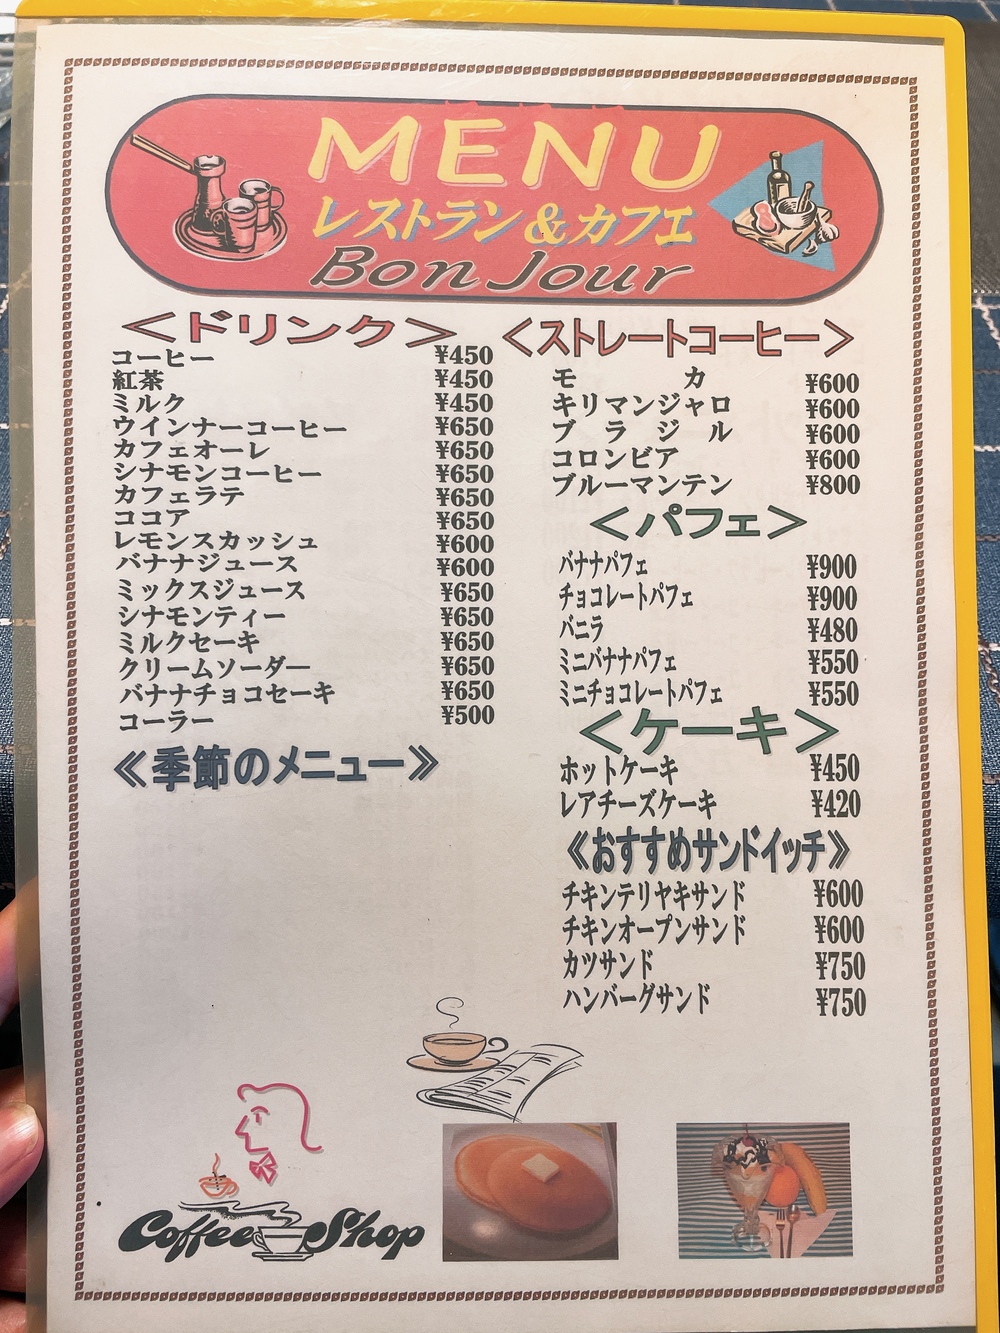 MENU
レストラン&カフェ
Bon Jour
<ドリンク>
コーヒー ¥450
紅茶 ¥450
ミルク ¥450
ウインナーコーヒー ¥650
カフェオーレ ¥650
シナモンコーヒー ¥650
カフェラテ ¥650
ココア ¥650
レモンスカッシュ ¥600
バナナジュース ¥600
ミックスジュース ¥650
シナモンティー ¥650
ミルクセーキ ¥650
クリームソーダー ¥650
バナナチョコセーキ ¥650
コーラー ¥500
《季節のメニュー》
<ストレートコーヒー>
モカ ¥600
キリマンジャロ ¥600
ブラジル ¥600
コロンビア ¥600
ブルーマンテン ¥800
<パフェ>
バナナパフェ ¥900
チョコレートパフェ ¥900
バニラ ¥480
ミニバナナパフェ ¥550
ミニチョコレートパフェ ¥550
<ケーキ>
ホットケーキ ¥450
レアチーズケーキ ¥420
《おすすめサンドイッチ》
チキンテリヤキサンド ¥600
チキンオープンサンド ¥600
カツサンド ¥750
ハンバーグサンド ¥750
Coffee Shop